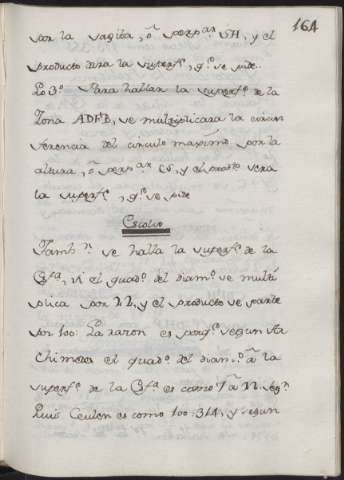 164
por la sagita, ô perp.ar SA, y el
producto sera la superf.e, q.e se pide.
Lo 3.º Para hallar la superf.e de la
Zona ADFB, se multiplicara la circun
ferencia del circulo maximo por la
altura, ô perp.ar CS, y el prod.to sera
la superf.e, q.e se pide
Escolio
Tamb.n se halla la superf.e de la
si el quad.o del diam.o se multi
plica por 22, y el producto se parte
por 100: La razon es porq.e segun Ar
chimedes el quad.o del diam.o â la
superf.e de la es como 7 â 22, seg.n
Luis Ceulen es como 100: 314, y segun